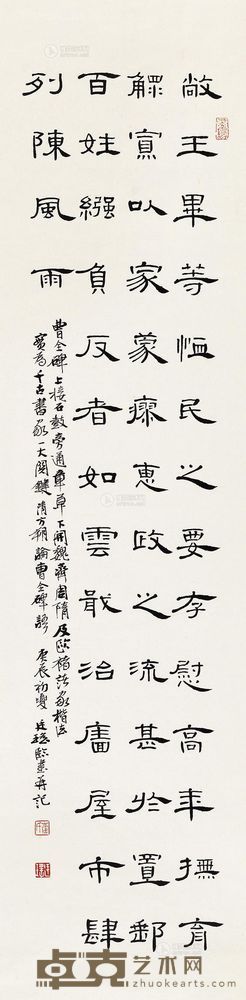 敞王畢等恤民之要存慰高年撫育
鰥寡以家蒙瘳惠政之流甚於置郵
百姓繦負反者如雲戢治廧屋市肆
列陳風雨
曹全碑上接石鼓旁通章草下開魏齊周隋及歐褚諸家楷法
實為千古書家一大關鍵 清方朔論曹全碑語 庚辰初夏 臨書并記
卓克艺术网
zhuokearts.com